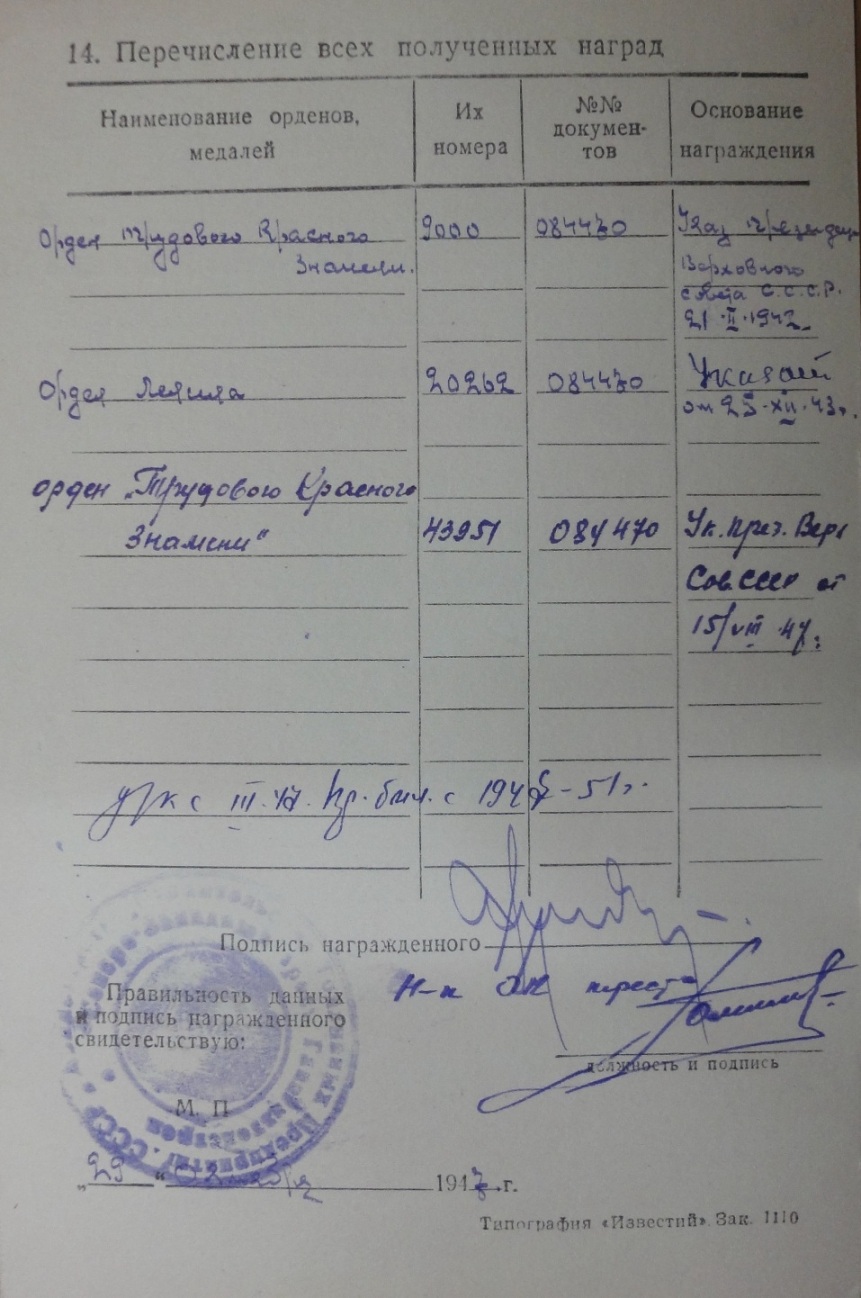 14. Перечисление всех полученных наград
Наименование орденов,
медалей
Их
номера
№№
докумен-
тов
Основание
награждения
Орден трудового Красного
Знамени.
9000
084470
Указ президиу
Верховного
совета С.С.С.Р.
21·II·1942
Орден Ленина
20262
084470
Указом
от 25·XII·43г.
орден „Трудового Красного
Знамени“
43951
084470
Ук. През. Верх
Сов. СССР от
15/VIII 47г.
с III·47.
с 194 -51г.
Подпись награжденного
Н-к ОК треста
Правильность данных
и подпись награжденного
свидетельствую:
должность и подпись
М. П
„29“ октября 1947 г.
Типография «Известий». Зак. 1110